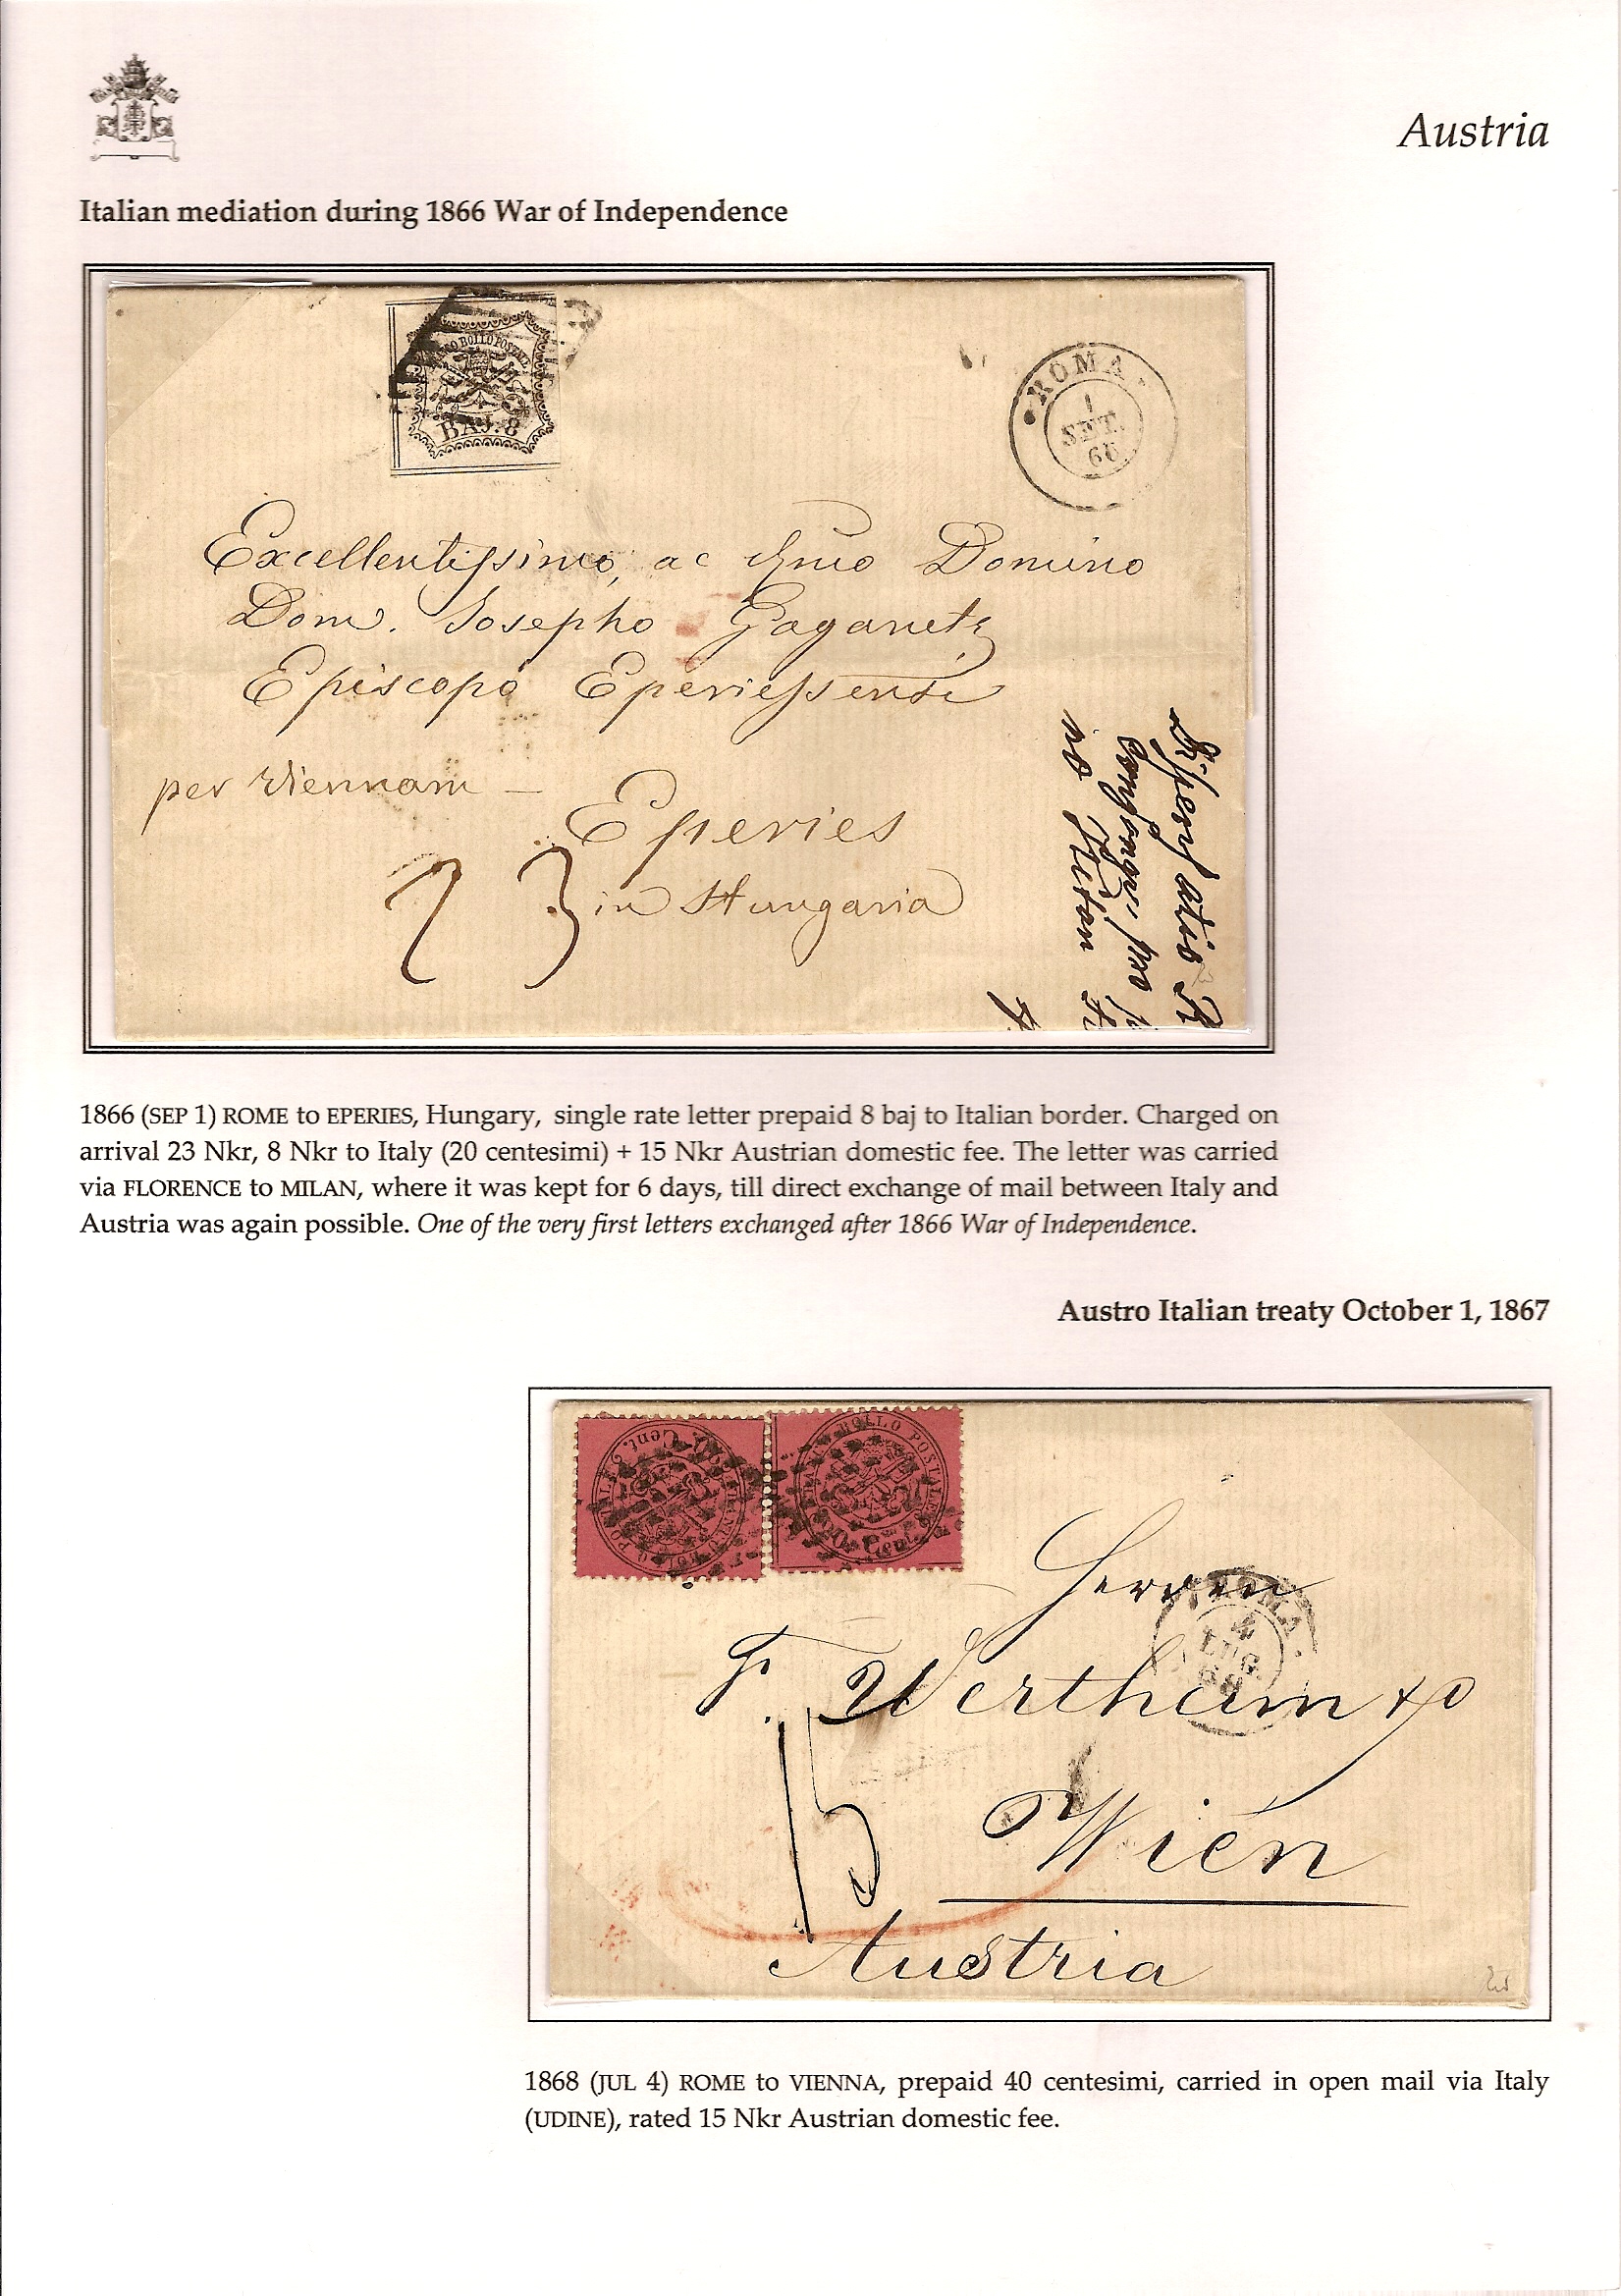 Austria
Italian mediation during 1866 War of Independence
BOLLO POSTALE
BAJ. 8
ROMA
1
SET.
66
Excellentissimo, ac Domino
Dom. Josepho Gaganetz
Episcopo Eperiessensi
per Viennam –
Eperies
23
in Hungaria
1866 (SEP 1) ROME to EPERIES, Hungary, single rate letter prepaid 8 baj to Italian border. Charged on
arrival 23 Nkr, 8 Nkr to Italy (20 centesimi) + 15 Nkr Austrian domestic fee. The letter was carried
via FLORENCE to MILAN, where it was kept for 6 days, till direct exchange of mail between Italy and
Austria was again possible. One of the very first letters exchanged after 1866 War of Independence.
Austro Italian treaty October 1, 1867
Cent.
BOLLO POSTALE
Cent.
Herren
ROMA
4
LUG.
68
F. Wertheim & Co
15
Wien
Austria
1868 (JUL 4) ROME to VIENNA, prepaid 40 centesimi, carried in open mail via Italy
(UDINE), rated 15 Nkr Austrian domestic fee.